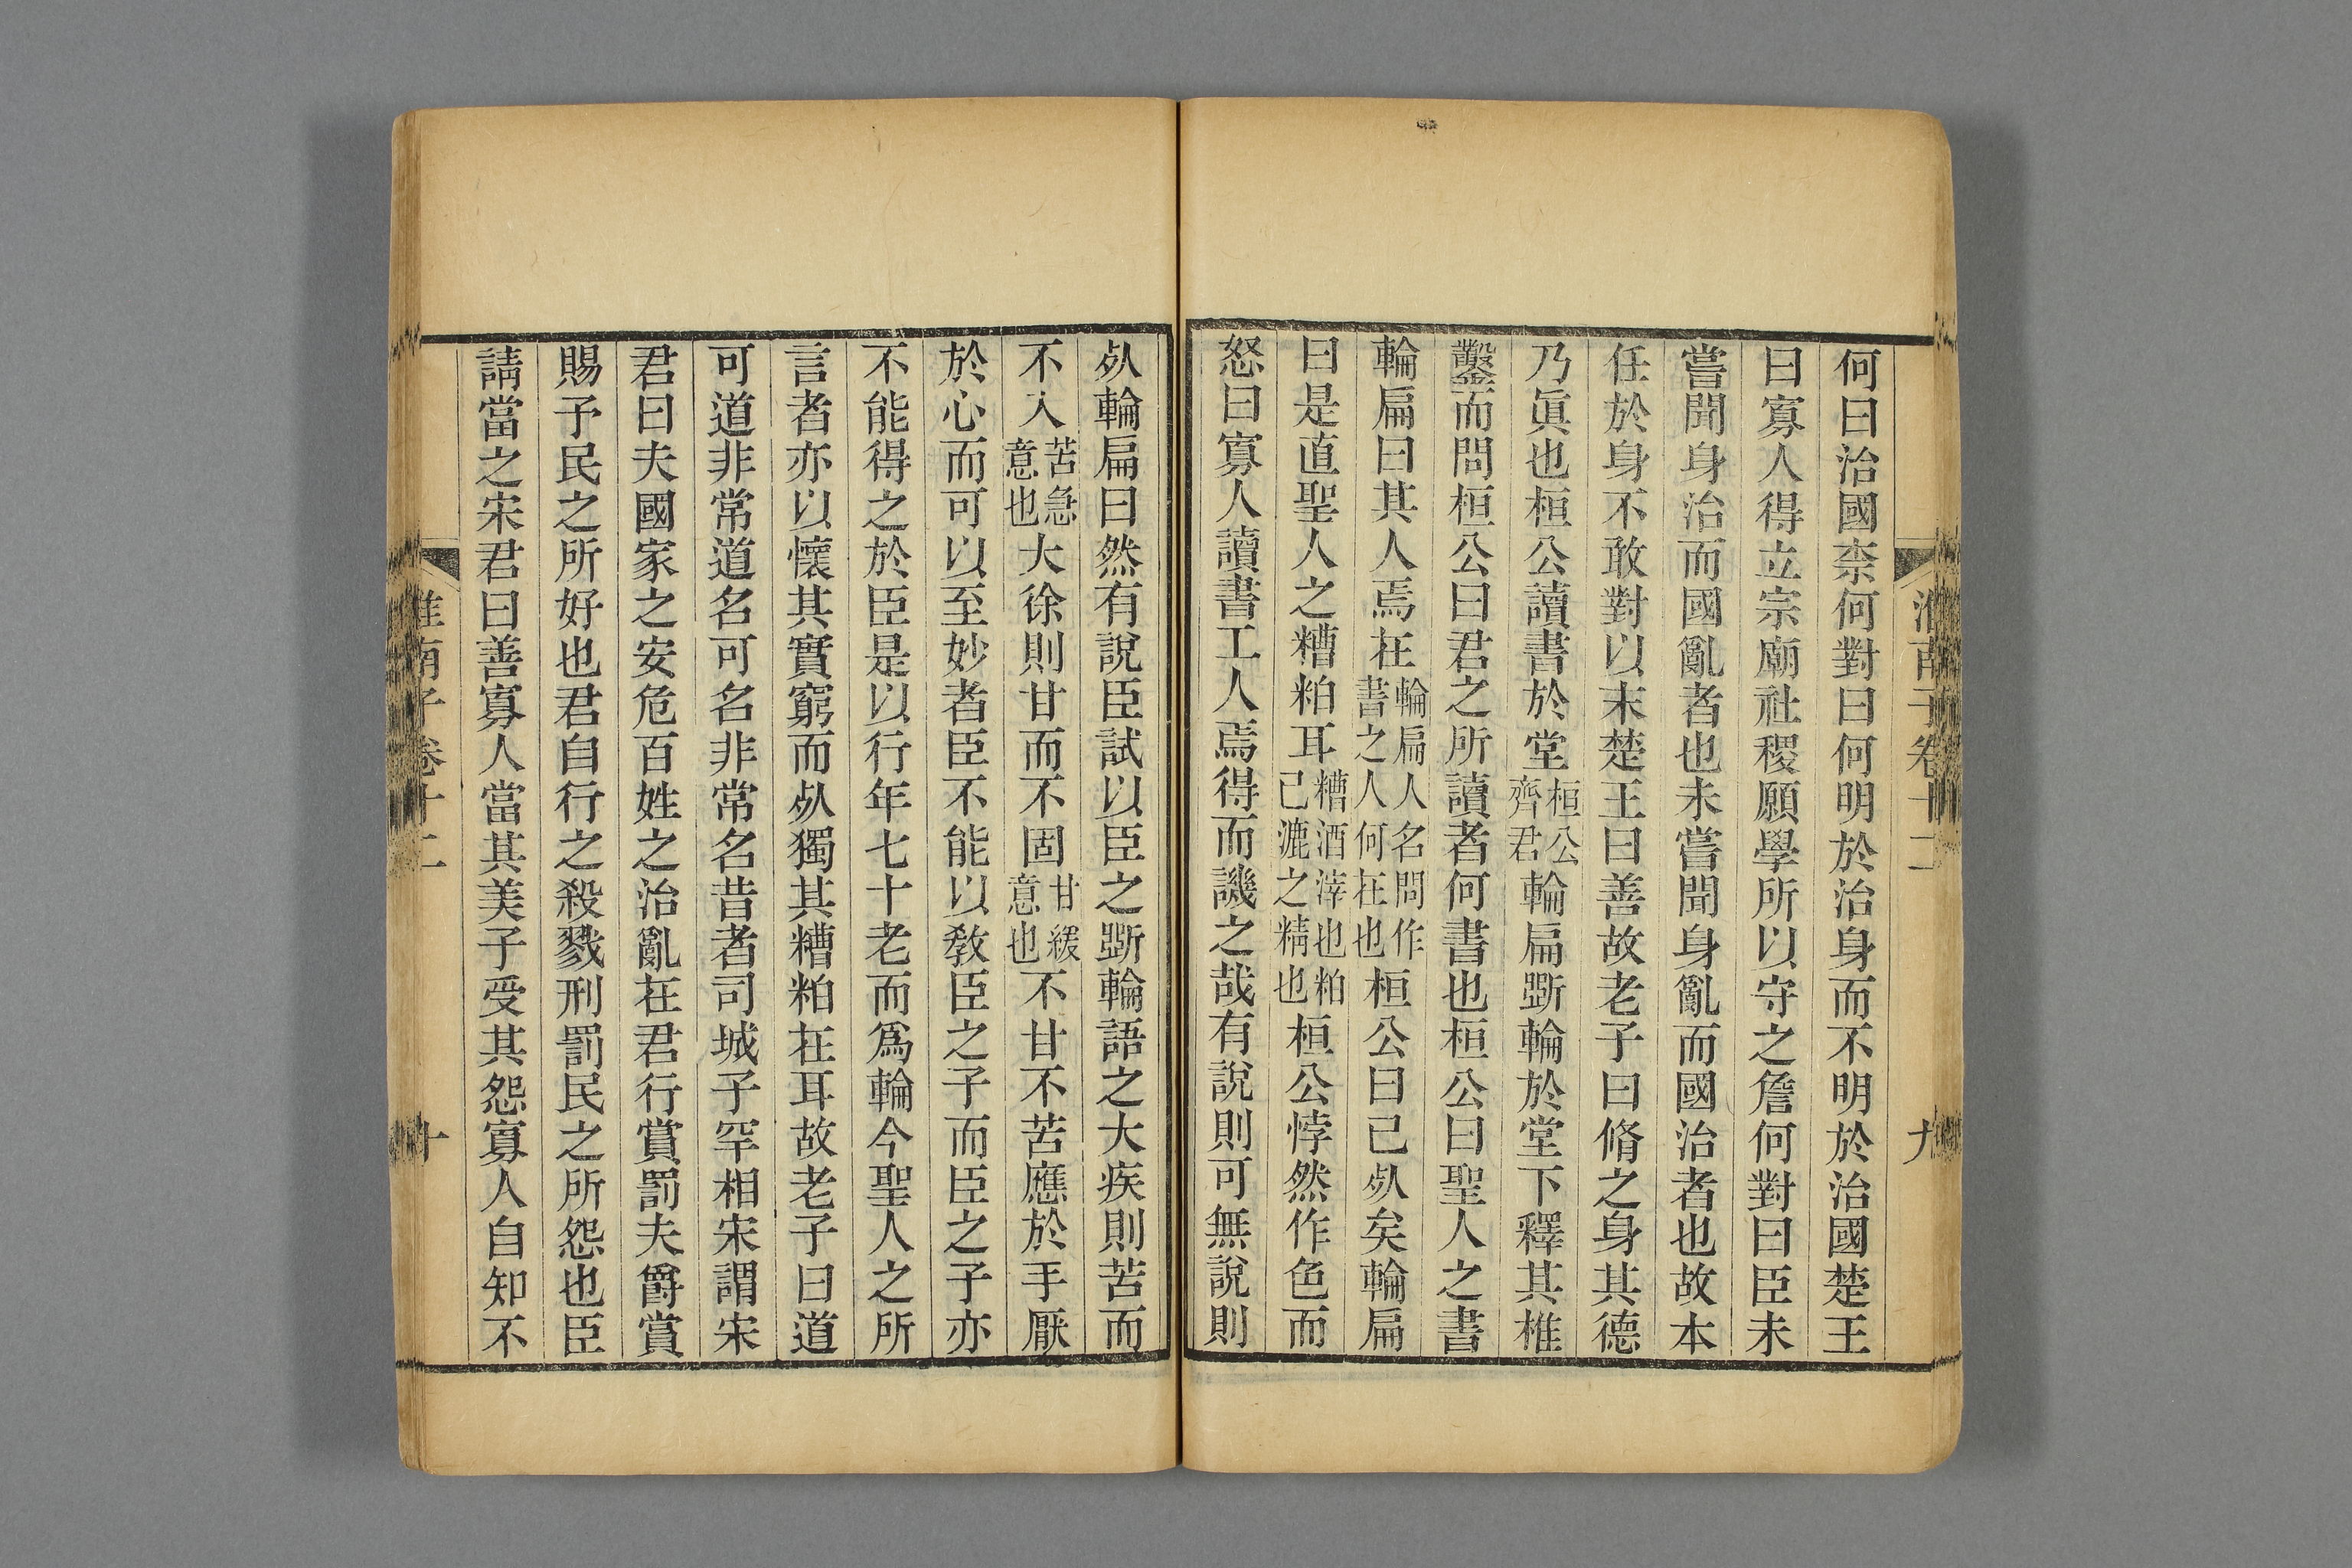 何曰治國柰何對曰何明於治身而不明於治國楚王
曰寡人得立宗廟社稷願學所以守之詹何對曰臣未
嘗聞身治而國亂者也未嘗聞身亂而國治者也故本
任於身不敢對以末楚王曰善故老子曰脩之身其德
乃眞也桓公讀書於堂桓公齊君輪扁斲輪於堂下釋其椎
鑿而問桓公曰君之所讀者何書也桓公曰聖人之書
輪扁曰其人焉在輪扁人名問作書之人何在也桓公曰已𣦸矣輪扁
曰是直聖人之糟粕耳糟酒滓也粕已漉之精也桓公悖然作色而
怒曰寡人讀書工人焉得而譏之哉有說則可無說則
𣦸輪扁曰然有說臣試以臣之斲輪語之大疾則苦而
不入苦急意也大徐則甘而不固甘緩意也不甘不苦應於手厭
於心而可以至妙者臣不能以敎臣之子而臣之子亦
不能得之於臣是以行年七十老而爲輪今聖人之所
言者亦以懷其實窮而𣦸獨其糟粕在耳故老子曰道
可道非常道名可名非常名昔者司城子罕相宋謂宋
君曰夫國家之安危百姓之治亂在君行賞罰夫爵賞
賜予民之所好也君自行之殺戮刑罰民之所怨也臣
請當之宋君曰善寡人當其美子受其怨寡人自知不
淮南子卷十二
九
淮南子卷十二
十